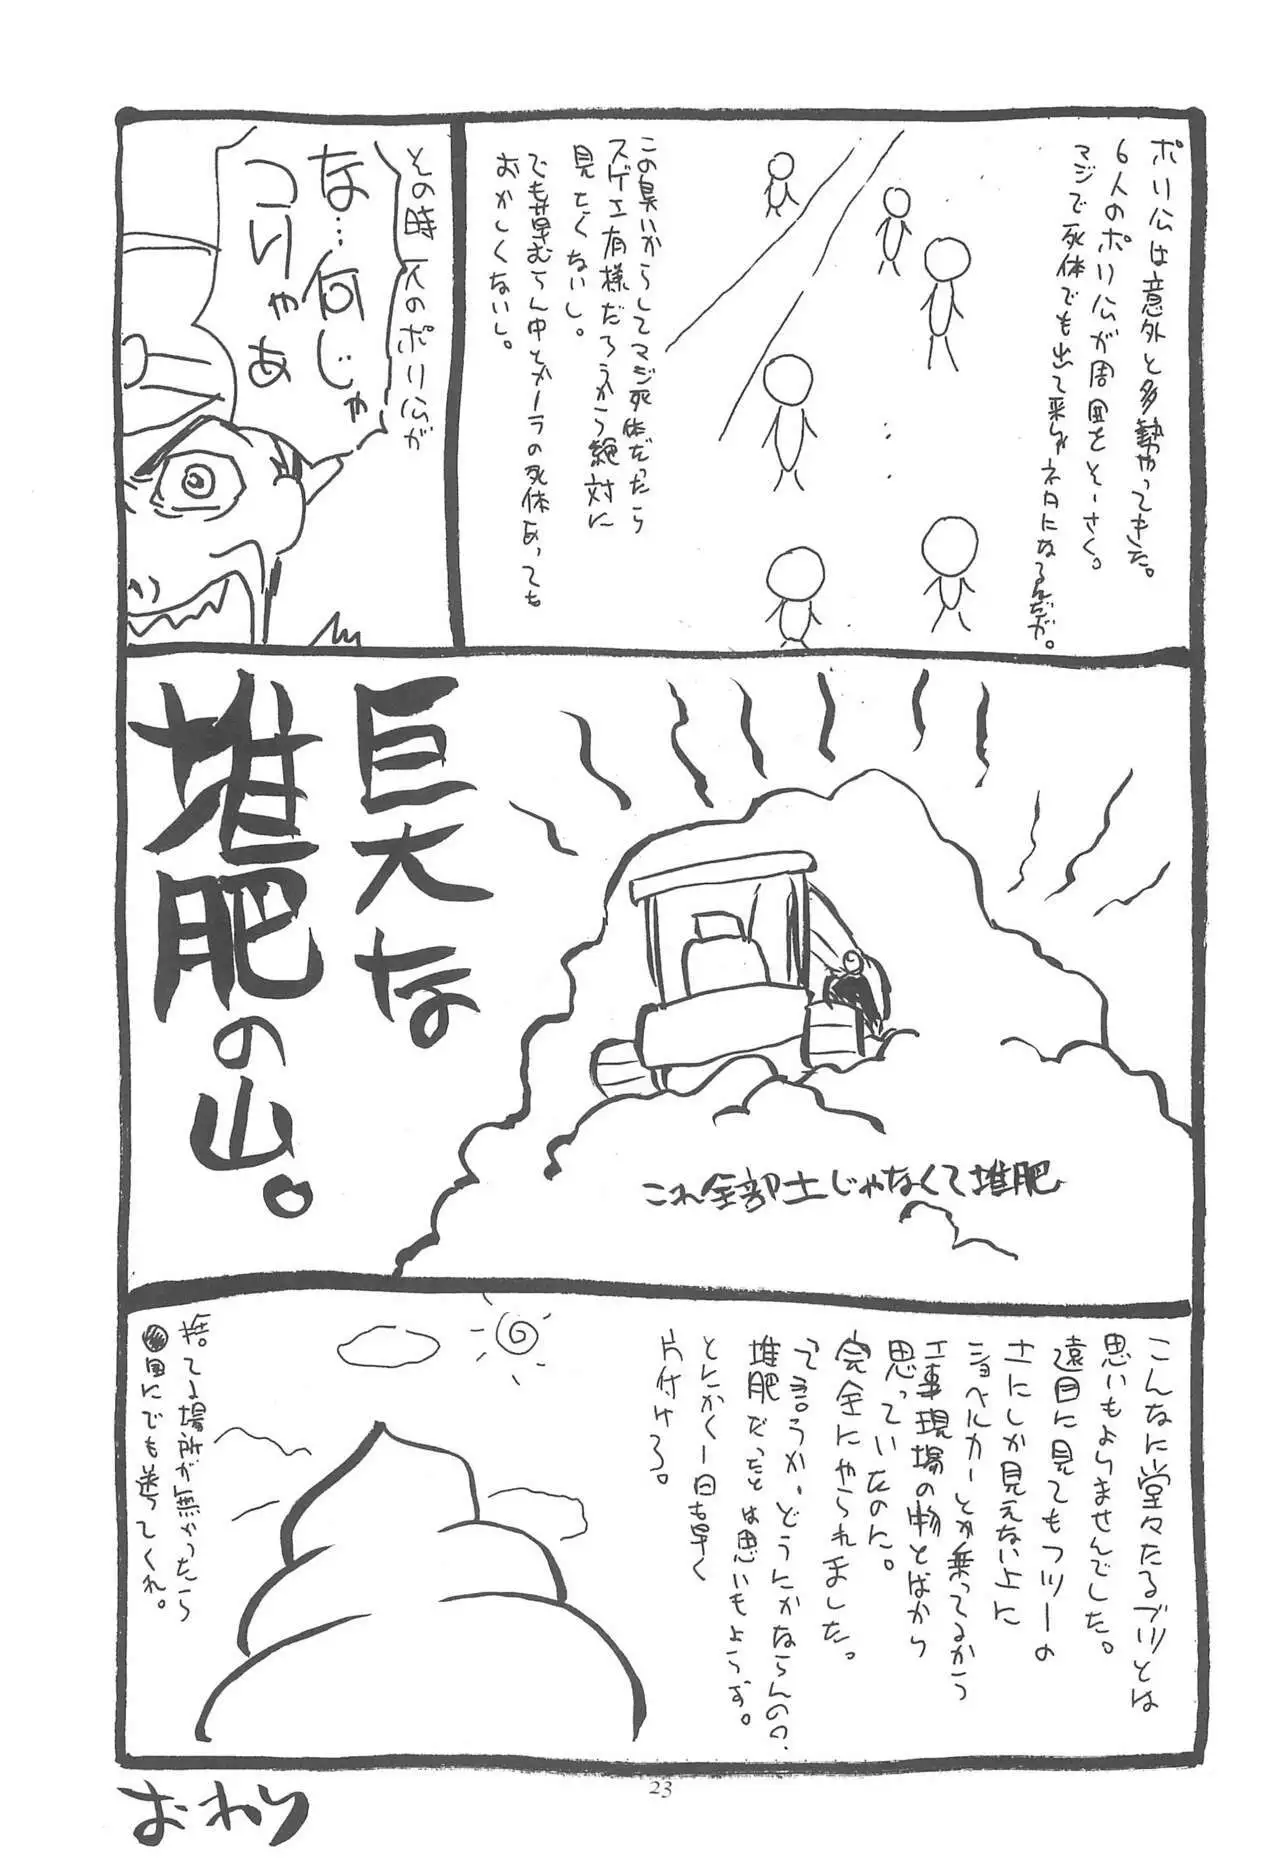 ポリ公は意外と多勢やってきた。
6人のポリ公が周囲をそーさく。
マジで死体でも出て来りゃネタになるんだが。
この臭いからしてマジ死体だったら
スゲエ有様だろうから絶対に
見たくないし。
でも草むらん中とかーラの死体あっても
おかしくないし。
その時一人のポリ公が
な…何じゃ
こりゃあ
巨大な
堆肥の山。
これ全部土じゃなくて堆肥
こんなに堂々たるブツとは
思いもよりませんでした。
遠目に見てもフツーの
土にしか見えない上に
ショベルカーとか乗ってるから
工事現場の物とばかり
思っていたのに。
完全にやられました。
つて言うか、どうにかならんの?
堆肥だったとは思いもよらず。
とにかく一日も早く
片付けろ。
捨てる場所が無かったら
国にでも送ってくれ。
23
おわり